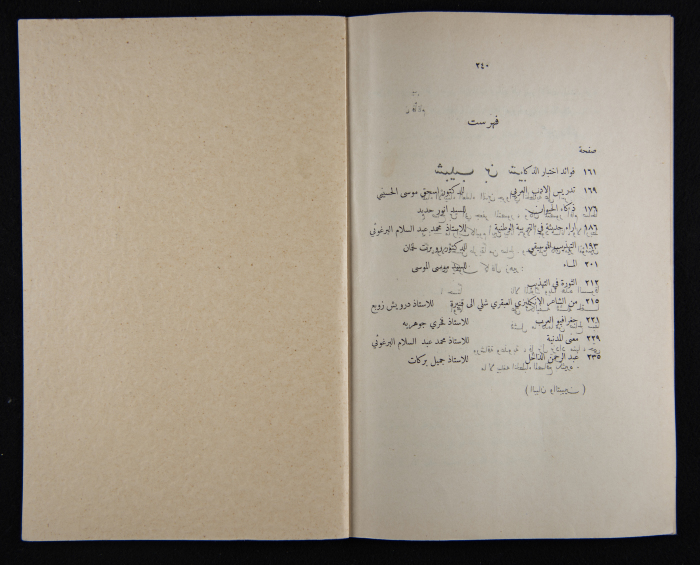 ٢٤٠
فهرست
صفحة
١٦١ فوائد اختبار الذكاء
١٦٩ تدريس الادب العربي للدكتور اسحق موسى الحسيني
١٧٦ ذكاء الحيوان للسيد انور حديد
١٨٦ اراء حديثة في التربية الوطنية للاستاذ محمد عبد السلام البرغوثي
١٩٣ التهذيب الموسيقي للدكتور روبرت لخمان
٢٠١ الماء للسيد موسى الموسى
٢١٢ الثورة في التهذيب
٢١٥ من الشاعر الانكليزي العبقري شلي الى قنبرة للاستاذ درويش زويع
٢٢١ جغرافيو العرب للاستاذ فخري جوهريه
٢٢٩ معنى المدنية للاستاذ محمد عبد السلام البرغوثي
٢٣٥ عبد الرحمن الداخل للاستاذ جميل بركات